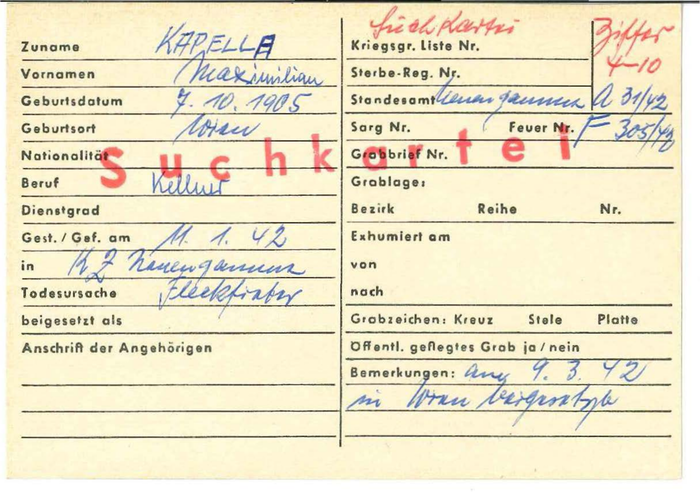 Zuname KAPELLA
Vornamen Maximilian
Geburtsdatum 7.10.1905
Geburtsort Wien
Nationalität
Beruf Kellner
Dienstgrad
Gest./Gef. am 11.1.42
in KZ Neuengamme
Todesursache Fleckfieber
beigesetzt als
Anschrift der Angehörigen
Suchkartei
Suchkartei
Ziffer
4-10
Kriegsgr. Liste Nr.
Sterbe-Reg. Nr.
Standesamt Neuengamme A 31/42
Sarg Nr. Feuer Nr. F 305/42
Grabbrief Nr.
Grablage:
Bezirk Reihe Nr.
Exhumiert am
von
nach
Grabzeichen: Kreuz Stele Platte
Öffentl. geflegtes Grab ja/nein
Bemerkungen: am 9.3.42
in Wien beigesetzt